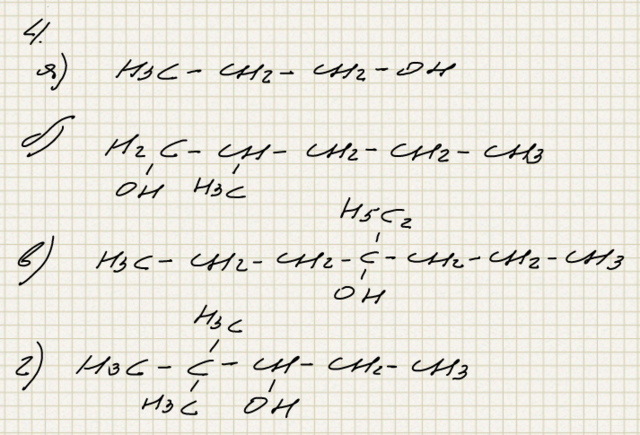 4.
а) H3C - CH2 - CH2 - OH
б) H2C - CH - CH2 - CH2 - CH3
OH H3C
H5C2
в) H3C - CH2 - CH2 - C - CH2 - CH2 - CH3
OH
H3C
г) H3C - C - CH - CH2 - CH3
H3C OH